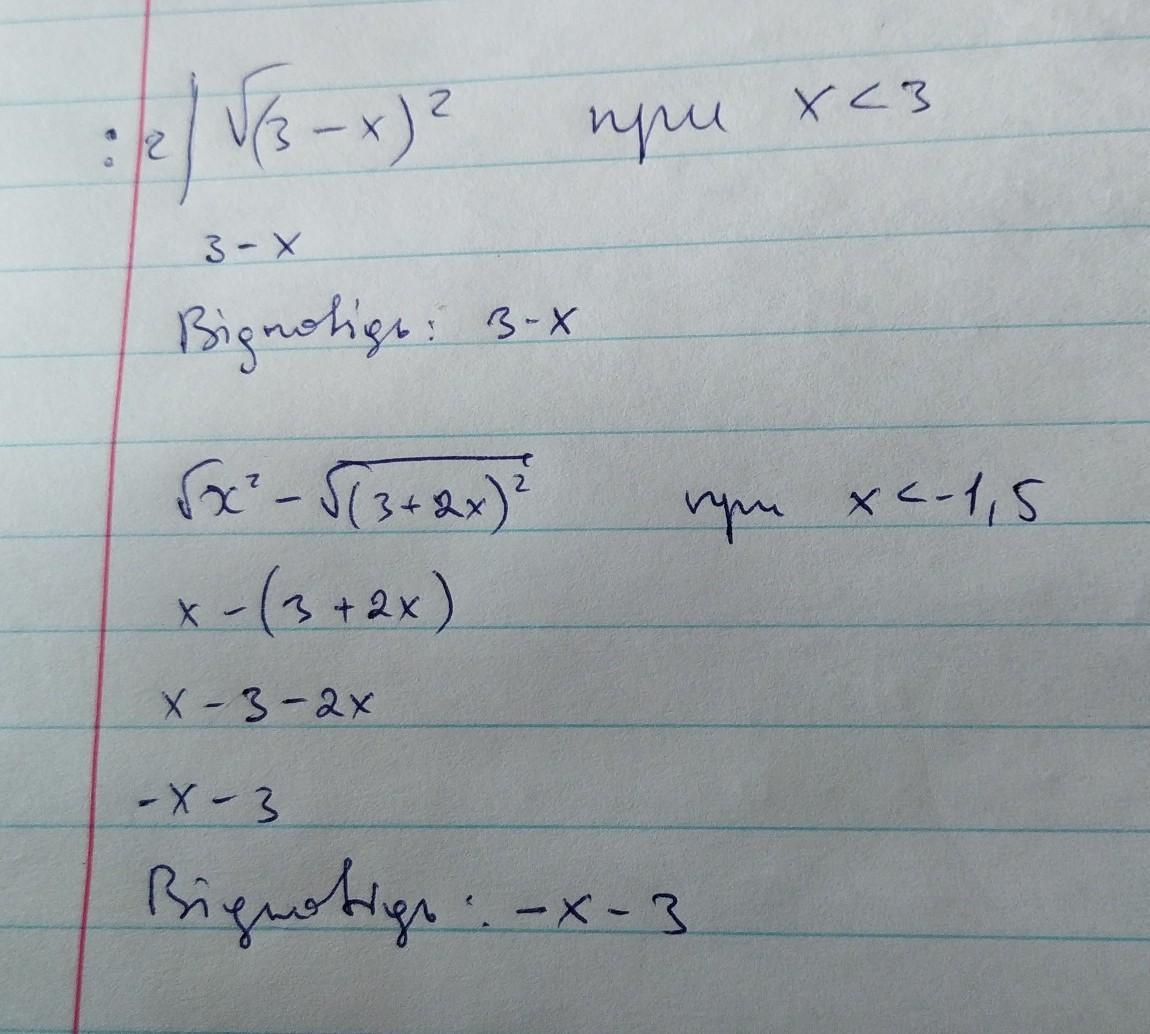 :2) √(3-x)² при x<3
3-x
Відповідь: 3-x
√x² - √(3+2x)² при x<-1,5
x-(3+2x)
x-3-2x
-x-3
Відповідь: -x-3